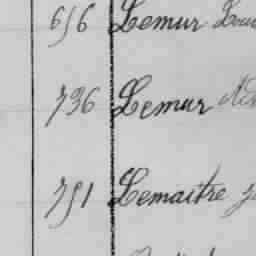 656 Lemur
736 Lemur
751 Lemaitre